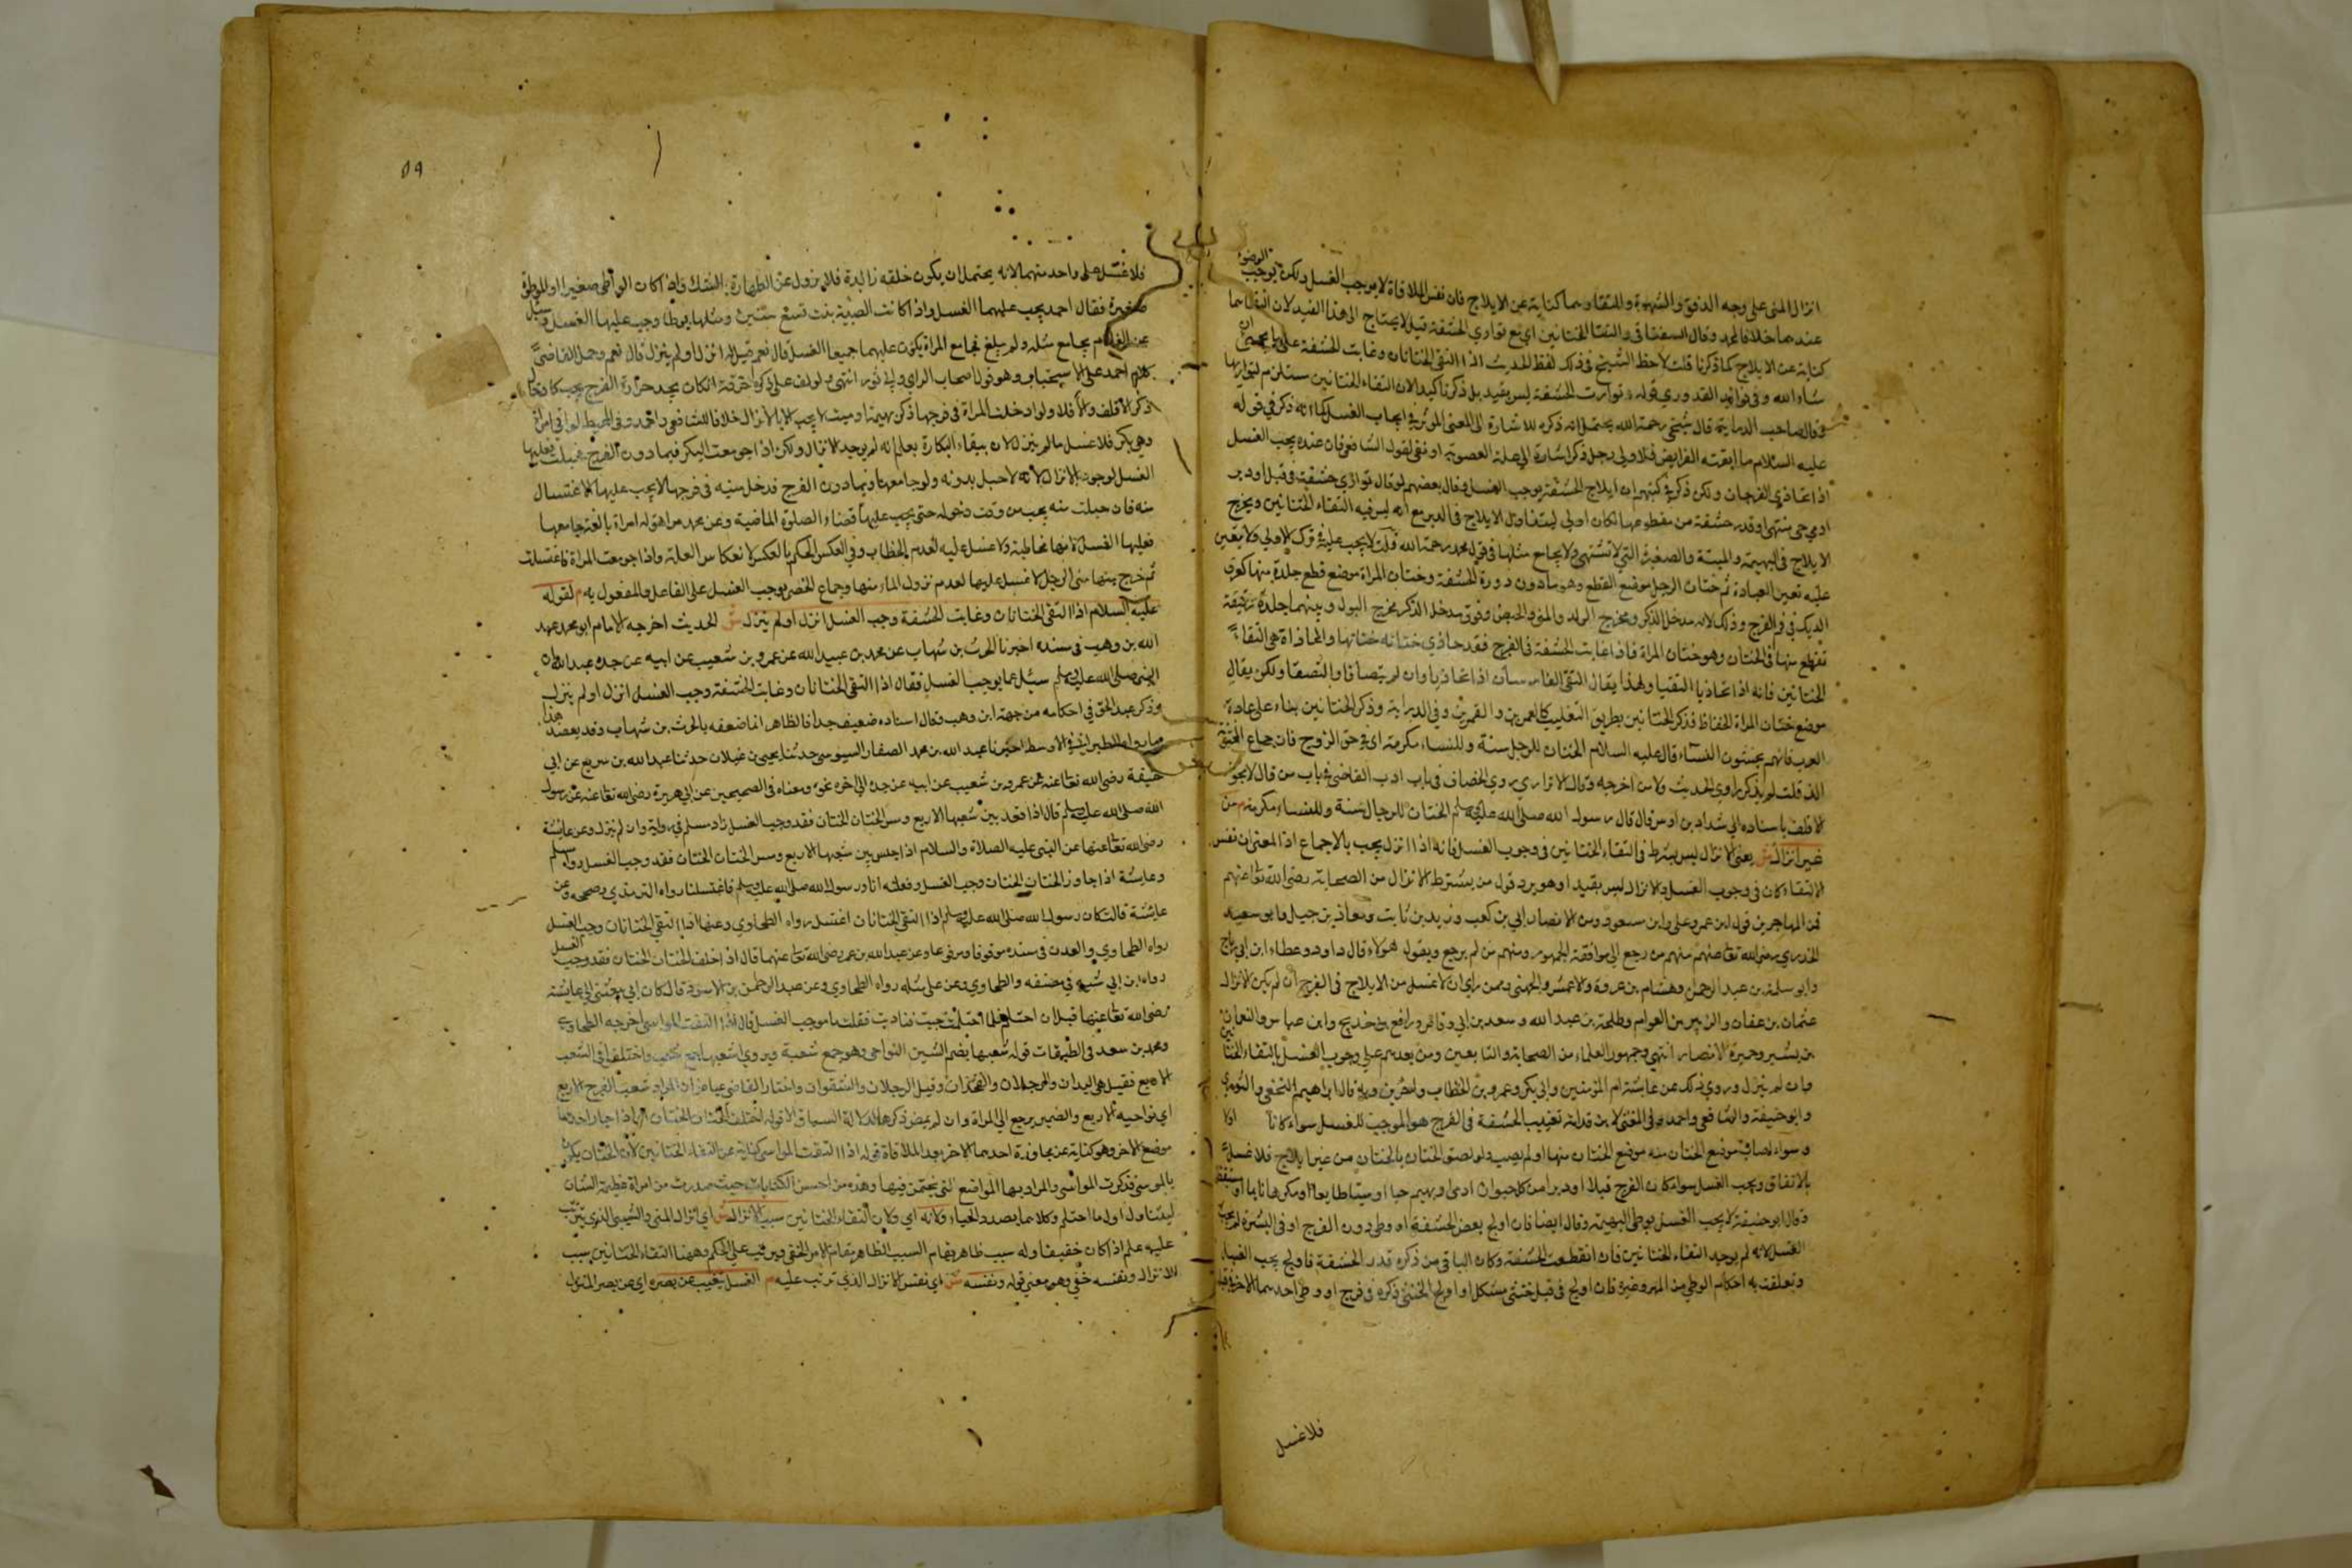 انزال المنى على وجه الدفق والشهوة والتقاؤهما كناية عن الايلاج فان نفس الملاقاة لا يوجب الغسل ولكن يوجب الوضوء
عندهما خلافا لمحمد وقال السغناقى والتقا الختانين اى مع توارى الحشفة قيل لا يحتاج الى هذا القيد لان التقاهما
كناية عن الايلاج كما ذكرنا قلت لاحظ الشيخ فى ذلك لفظ الحديث اذا التقى الختانان وغابت الحشفة على ما يجئ ان
شاء الله وفى فوائد القدورى قوله وتوارت الحشفة ليس بقيد بل ذكر تاكيدا لان التقاء الختانين مستلزم لتواريها
وقال صاحب الدراية قال شيخى رحمة الله يحتمل انه ذكره للاشارة الى المعنى المؤثر فى ايجاب الغسل كما انه ذكر فى قوله
عليه السلام ما ابقته الفرايض فلاولى رجل ذكر اشارة الى علة العصوبة او نفى لقول الشافعى فان عنده يجب الغسل
اذا تحاذى الفرجان ولكن ذكر فى كتبهم ان ايلاج الحشفة يوجب الغسل وقال بعضهم لو قال توارى حشفة فى قبل او دبر
ادمى حى مشتهى او قدر حشفة من مقطوعها لكان اولى ليتناول الايلاج فى الدبر مع انه ليس فيه التقاء الختانين ويخرج
الايلاج فى البهيمة والميتة والصغيرة التى لا تشتهى ولا يجامع مثلها فى قول محمد رحمة الله قلت لا يجب عليه ترك الاولى ولا يتعين
عليه تعين العبادة ثم ختان الرجل موضع القطع وهو ما دون دورة الحشفة وختان المراة موضع قطع جلدة منها كعرف
الديك فى فم الفرج وذلك لانه مدخل الذكر ومخرج الولد والمنى والحيض وفوق مدخل الذكر مخرج البول وبينهما جلدة رقيقة
تقطع منها فى الختان وهو ختان المراة فاذا غابت الحشفة فى الفرج فقد حاذى ختانه ختانها والمحاذاة هى التقاء
الختانين فانه اذا تحاذيا التقيا ولهذا يقال التقى الفارسان اذا تحاذيا وان لم يتصاقا والتصقا ولكن يقال
موضع ختان المراة الخفاظ فذكر الختانين بطريق التغليب كالعمرين والقمرين وفى الدراية وذكر الختانين بناء على عادة
العرب فانهم يختنون النساء قال عليه السلام الختان للرجل سنة وللنساء مكرمة اى فى حق الزوج فان جماع المختنة
الذ قلت لم يذكر راوى الحديث ولا من اخرجه وقال الاترارى روى الخصاف فى باب ادب القاضى فى باب من قال لا يجوز
الاقلف باسناده الى شداد بن اوس قال قال رسول الله صلى الله عليه وسلم الختان للرجال سنة وللنساء مكرمة م من
غير انزال ش يعنى الانزال ليس بشرط فى التقاء الختانين فى وجوب الغسل فانه اذا انزل يجب بالاجماع اذ المعنى ان نفس
الالتقاء كان فى وجوب الغسل والانزال ليس بقيد او هو يرد قول من يشترط الانزال من الصحابة رضى الله تعا عنهم
فمن المهاجرين قول ابن عمرو على وابن مسعود ومن الانصار ابى بن كعب وزيد بن ثابت ومعاذ بن جبل وابو سعيد
الخدرى رضى الله تعا عنهم منهم من رجع الى موافقة الجمهور ومنهم من لم يرجع وبقول هولاء قال داود وعطاء ابن ابى رباح
وابو سلمة بن عبد الرحمن وهشام بن عروة والاعمش والجهنى وممن راى ان لا غسل من الايلاج فى الفرج ان لم يكن الانزال
عثمان بن عفان والزبير بن العوام وطلحة بن عبد الله وسعد بن ابى وقاص ورافع بن خديج وابن عباس والنعمان
بن بشير وجمرة الانصار انتهى وجمهور العلماء من الصحابة والتابعين ومن بعدهم على وجوب الغسل بالتقاء الختانين
وان لم ينزل وروى ذلك عن عايشة ام المؤمنين وابى بكر وعمر بن الخطاب واخرين وبه قال ابراهيم النخعى والثورى
وابو حنيفة والشافعى واحمد وفى المغنى لابن قدامة تغييب الحشفة فى الفرج هو الموجب للغسل سواء كانا اولا
وسواء لصاق موضع الختان منه موضع الختان منها او لم يصب ولو لصق الختان بالختان من غير ايلاج فلا غسل
بالاتفاق ويجب الغسل سواء كان الفرج قبلا او دبرا من كل حيوان ادمى او بهيم حيا او ميتا طايعا او مكرها نايما او مستيقظا
وقال ابو حنيفة لا يجب الغسل بوطى البهيمة وقال ايضا فان اولج بعض الحشفة او وطى دون الفرج او فى السرة لم يجب
الغسل لانه لم يوجد التقاء الختانين فان انقطعت الحشفة وكان الباقى من ذكره قدر الحشفة فاولج يجب الغسل
وتعلقت به احكام الوطى من المهر وغيره فان اولج فى قبل خنثى مشكل او اولج الخنثى ذكره فى فرج او وطى احدهما الاخر فى قبله
فلا غسل
٥٩
فلا غسل على واحد منهما لانه يحتمل ان يكون خلقه زايدة فلا يزول عن الطهارة بالشك فاذا كان الواطى صغيرا او الموطوة
صغيرة فقال احمد يجب عليهما الغسل واذا كانت الصبية بنت تسع سنين ومثلها يوطا وجب عليها الغسل وسئل
عن الغلام يجامع مثله ولم يبلغ فجامع المراة يكون عليهما جميعا الغسل قال نعم قيل له انزل او لم ينزل قال نعم وحمل القاضى
كلام احمد على الاستحباب وهو قول اصحاب الراى وابى ثور انتهى ولو لف على ذكره خرقة ان كان يجد حرارة الفرج يجب
ذكر الاقلف والا فلا ولو ادخلت المراة فى فرجها ذكر بهيمة او ميت لا يجب الا بالانزال خلافا للشافعى واحمد وفى المحيط لو اتى امراة
وهى بكر فلا غسل ما لم ينزل لان ببقاء البكارة يعلم انه لم يوجد الانزال ولكن اذا جومعت البكر فيما دون الفرج فحبلت فعليها
الغسل لوجود الانزال لانه لا حبل بدونه ولو جامعها فيما دون الفرج فدخل منيه فى فرجها لا يجب عليها الاغتسال
منه فان حبلت منه يجب من وقت دخوله حتى يجب عليها قضاء الصلوة الماضية وعن محمد مراهق له امراة بالغة جامعها
فعليها الغسل لانها مخاطبة ولا غسل عليه لعدم الخطاب وفى العكس الحكم بالعكس لانعكاس العلة واذا جومعت المراة فاغتسلت
ثم خرج منها منى الرجل لا غسل عليها لعدم نزول الماء منها وجماع الخصى يوجب الغسل على الفاعل والمفعول به م لقوله
عليه السلام اذا التقى الختانان وغابت الحشفة وجب الغسل انزل او لم ينزل ش الحديث اخرجه الامام ابو محمد عبد
الله بن وهب فى مسنده اخبرنا الحرث بن شهاب عن محمد بن عبيد الله عن عمرو بن شعيب عن ابيه عن جده عبد الله ان
النبى صلى الله عليه وسلم سئل عما يوجب الغسل فقال اذا التقى الختانان وغابت الحشفة وجب الغسل انزل او لم ينزل
وذكر عبد الحق فى احكامه من جهة ابن وهب وقال اسناده ضعيف جدا فالظاهر انما ضعفه بالحرث بن شهاب وقد يعضد هذا
ما رواه الطبرانى فى الاوسط اخبرنا عبد الله بن محمد الصفار السوسى حدثنا يحيى بن غيلان حدثنا عبد الله بن بزيع عن ابى
حنيفة رضى الله تعا عنه عن عمرو بن شعيب عن ابيه عن جده الى اخره نحوه ومعناه فى الصحيحين عن ابى هريرة رضى الله تعا عنه عن رسول
الله صلى الله عليه وسلم قال اذا قعد بين شعبها الاربع ومس الختان الختان فقد وجب الغسل زاد مسلم فى رواية وان لم ينزل وعن عايشة
رضى الله تعا عنها عن النبى عليه الصلاة والسلام اذا جلس بين شعبها الاربع ومس الختان الختان فقد وجب الغسل رواه مسلم
وعايشة اذا جاوز الختان الختان وجب الغسل وفعلته انا ورسول الله صلى الله عليه وسلم فاغتسلنا رواه الترمذى وصححه وعن
عايشة قالت كان رسول الله صلى الله عليه وسلم اذا التقى الختانان اغتسل رواه الطحاوى وعنها اذا التقى الختانان وجب الغسل
رواه الطحاوى والعدنى فى مسنده موقوفا ومرفوعا وعن عبد الله بن عمر رضى الله تعا عنهما قال اذا خلف الختان الختان فقد وجب الغسل
رواه ابن ابى شيبة فى مصنفه والطحاوى وعن على مثله رواه الطحاوى وعن عبد الرحمن بن الاسود قال كان ابى يبعثنى الى عايشة
رضى الله تعا عنها قبل ان احتلم فلما احتلمت جيت فناديت فقلت ما موجب الغسل قال اذا التقت المواسى اخرجه الطحاوى
ومحمد بن سعد فى الطبقات قوله شعبها بضم الشين النواحى وهو جمع شعبة ويروى اشعبها جمع شعب واختلف فى الشعب
الاربع فقيل هى اليدان والرجلان والفخذان وقيل الرجلان والشفران واختار القاضى عياض ان المراد شعب الفرج الاربع
اى نواحيه الاربع والضمير يرجع الى المراة وان لم يمض ذكرها لدلالة السياق الا قوله اختلف الختان الختان اى اذا جاز احدهما
موضع الاخر وهو كناية عن مجاوزة احدهما الاخر بعد الملاقاة قوله اذا التقت المواسى كناية عن التقاء الختانين لان الختان يكون
بالموسى فذكرت المواسى والمراد بها المواضع التى يختتن فيها وهذه من احسن الكنايات حيث صدرت من امراة عظيمة الشان
ليتناول اول ما احتلم وكلاهما يصدد الحياء ولانه اى ولان التقاء الختانين سبب الانزال ش اى انزال المنى والشيئ الذى يترتب
عليه علم اذا كان خفيفا وله سبب ظاهر يقام السبب الظاهر مقام الامر الخفى ويرتب على الحكم وههنا التقاء الختانين سبب
للانزال ونفسه خفى وهو معنى قوله ونفسه ش اى نفس الانزال الذى ترتب عليه م الغسل يتغيب عن بصره اى عن بصر المنزل